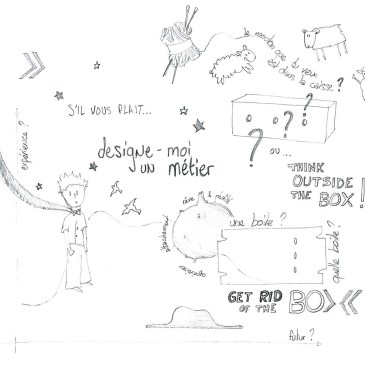 le mouton que tu veux
est dans la caisse ?
S'IL VOUS PLAIT...
expérience ?
designe-moi
UN MÉTIER
? ? ?
OU...
THINK
OUTSIDE
THE BOX !
rêve & réalité
une boite ?
quelle boite ?
GET RID
OF THE BOX
futur ?